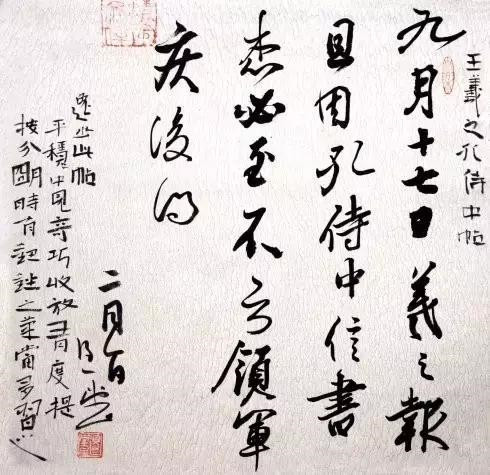 王羲之孔侍中帖
九月十七日羲之報
且因孔侍中信書
想必至不知領軍
疾後問
二月
此帖
平穩中見奇巧收放有度提
按分明時有詼諧之筆當多習